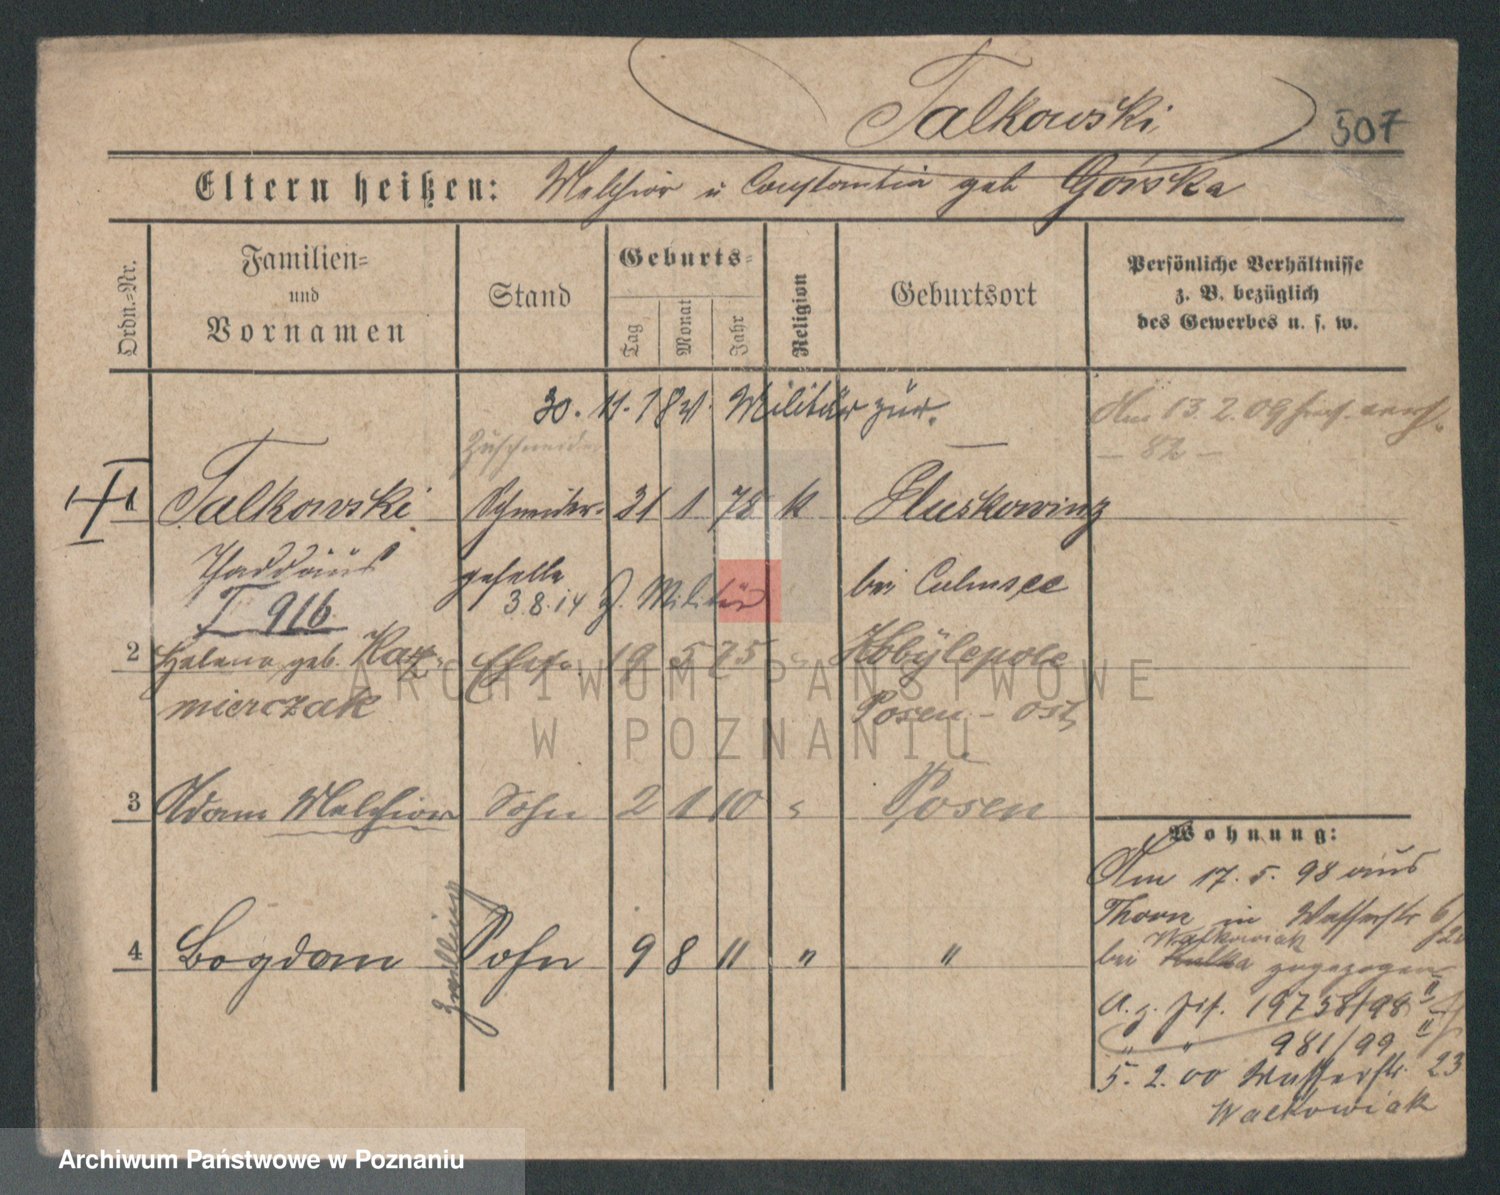 Talkowski
507
Eltern heißen: Melchior u Constantia geb Górska
Ordn.-Nr.
Familien-
und
Vornamen
Stand
Geburts-
Tag
Monat
Jahr
Religion
Geburtsort
Persönliche Verhältnisse
z. B. bezüglich
des Gewerbes u. s. w.
30. 11. Militär zur.
Am 13. 2. 09
– 82 –
Zuschneider
1 Talkowski Schneider- 31 1 78 k Gluskowinz
Thaddäus geselle bei Culmsee
3.8.14 z. Militär
T 916
2 Helena geb. Kaz- Ehefr. 19 5 75 " Kobylepole
mierczak Posen - ost
3 Adam Melchior Sohn 2 1 10 " Posen
Wohnung:
Am 17. 5. 98 aus
Thorn in Wasserstr
Walkowiak
bei zugezogen
4 Bogdan Zwilling Sohn 9 8 11 " "
A. z. 19758/98 II
" " 981/99 II
5. 2. 00 Wasserstr. 23
Walkowiak
ARCHIWUM PAŃSTWOWE
W POZNANIU
Archiwum Państwowe w Poznaniu